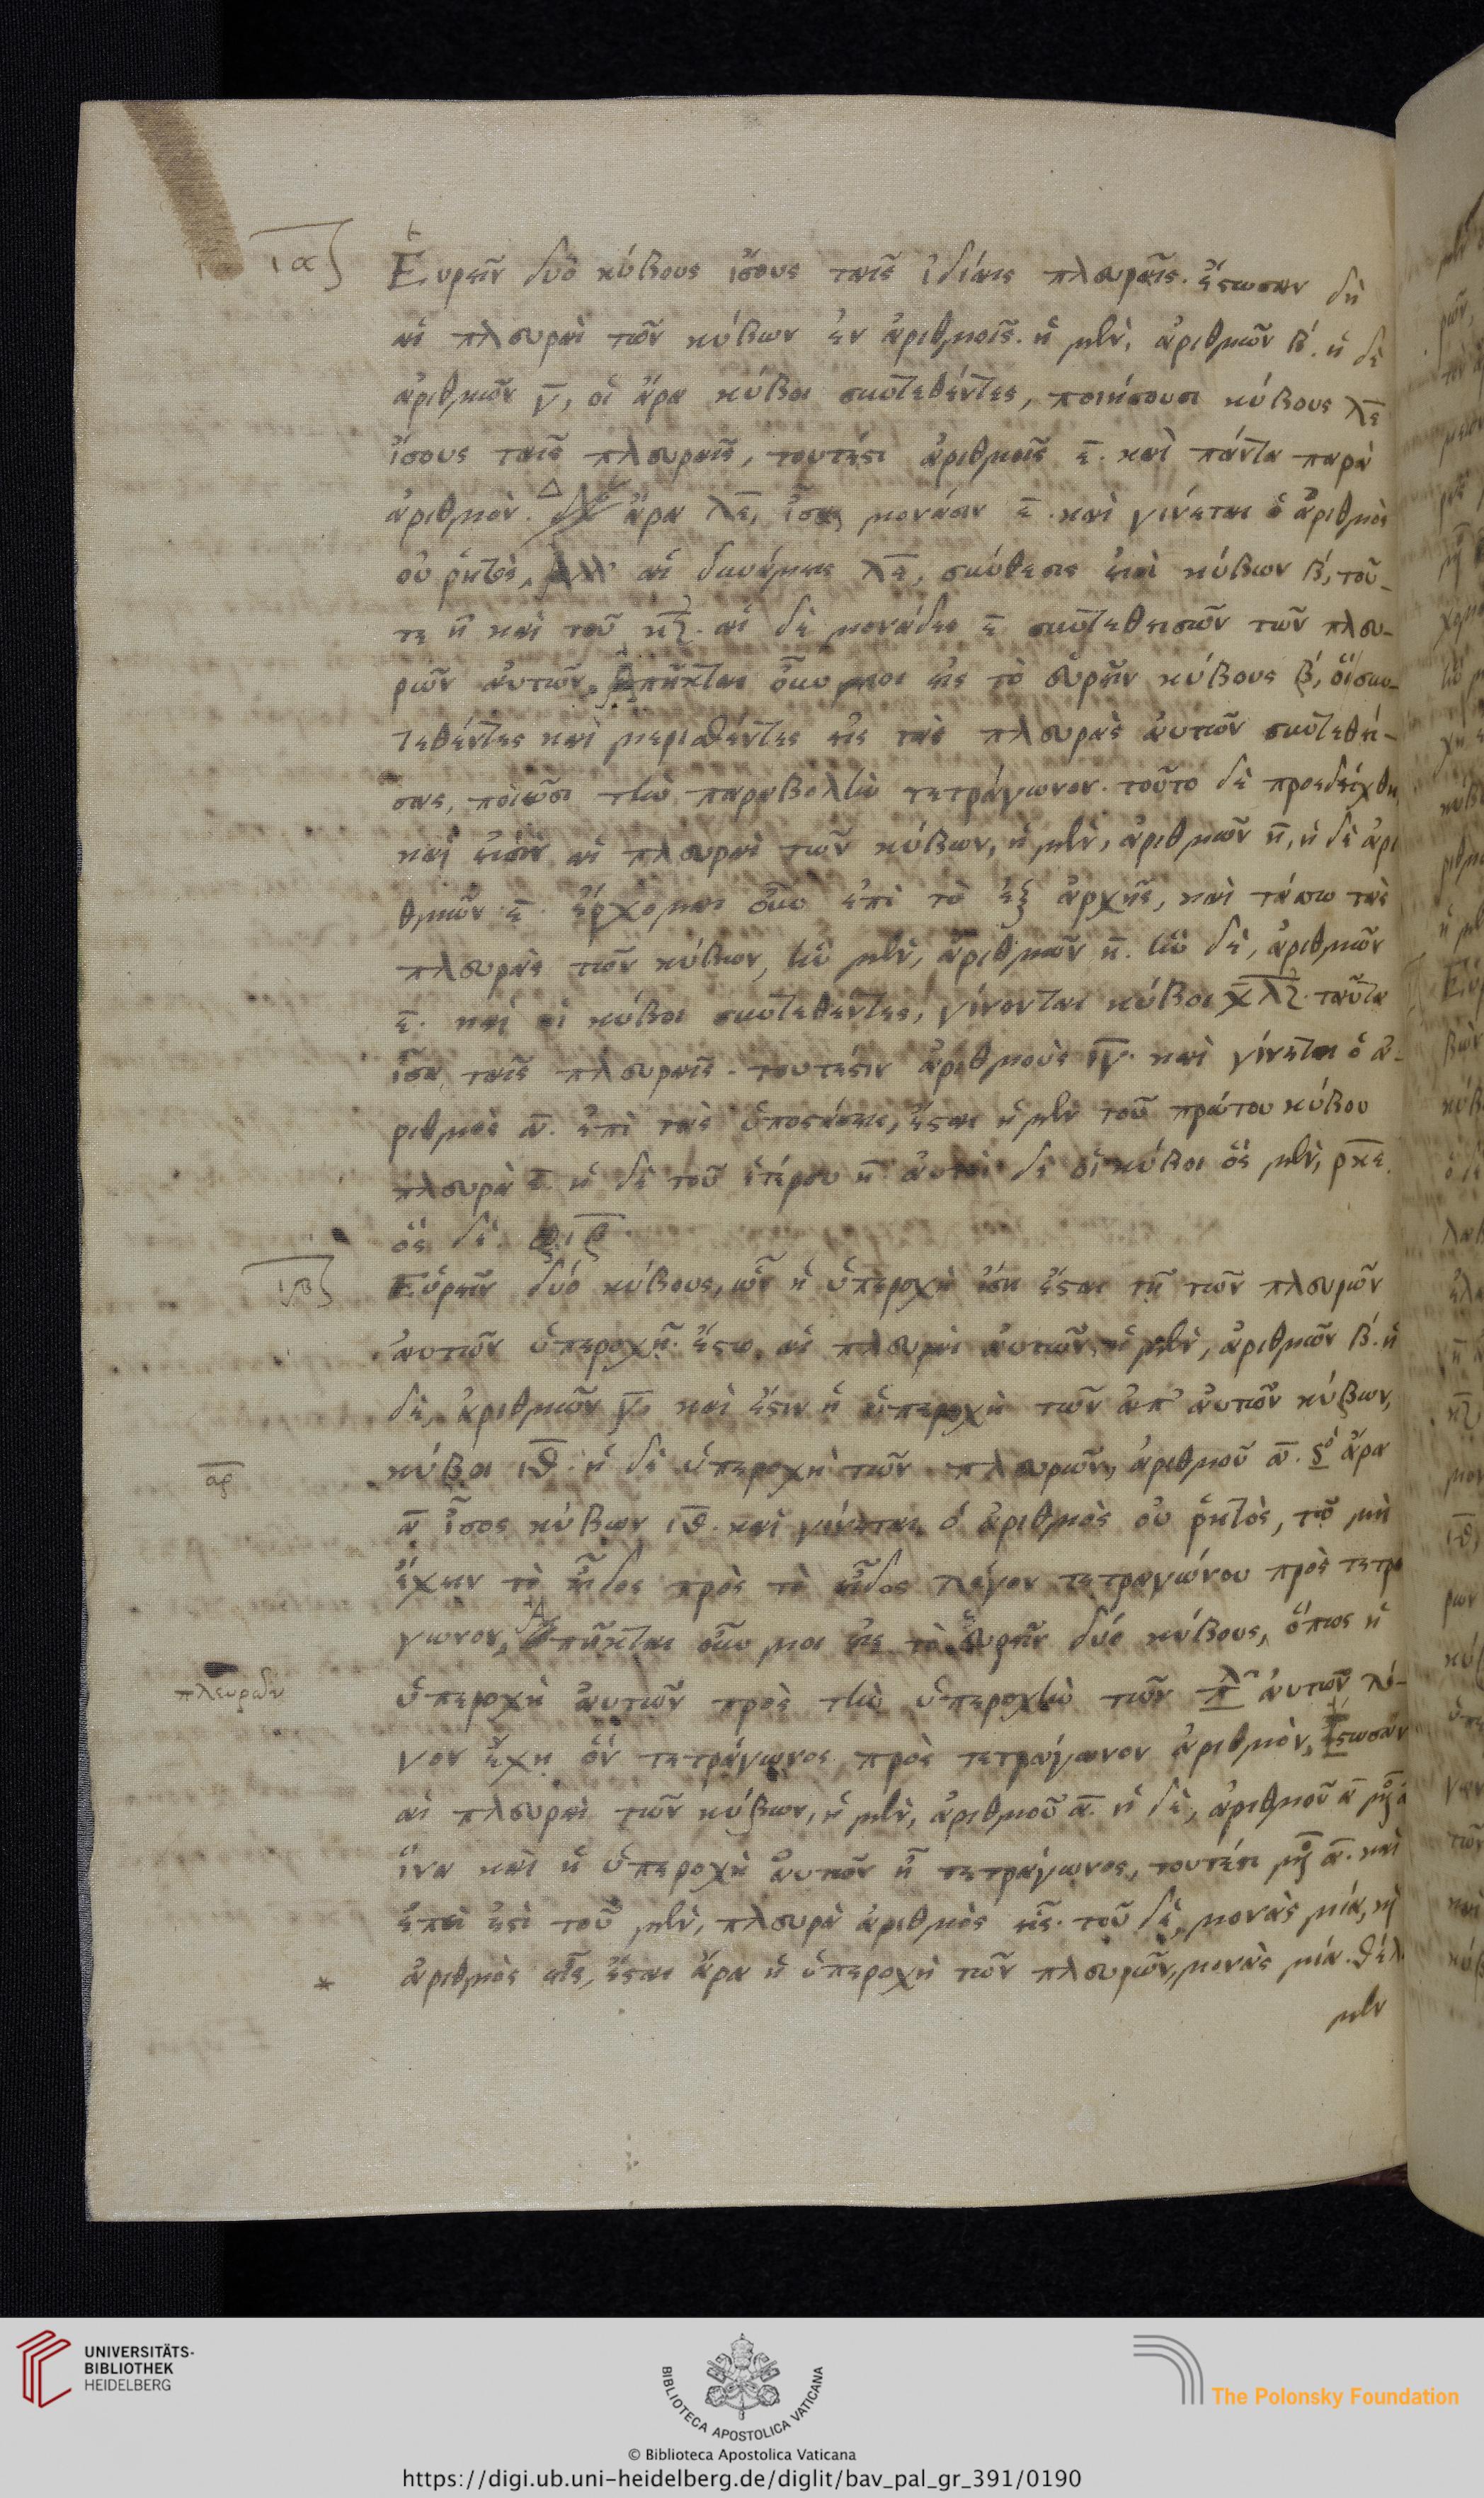 ια
Εὑρεῖν δύο κύβους ἴσους ταῖς ἰδίαις πλευραῖς. ἔστωσαν δὴ
αἱ πλευραὶ τῶν κύβων ἐν ἀριθμοῖς. ἡ μὲν, ἀριθμῶν β. ἡ δὲ
ἀριθμῶν γ, οἱ ἄρα κύβοι συντεθέντες, ποιήσουσι κύβους λε
ἴσους ταῖς πλευραῖς, τουτέστι ἀριθμοῖς ε. καὶ πάντα παρὰ
ἀριθμὸν. ἄρα λε, ἴσαι μονάσιν ε. καὶ γίνεται ὁ ἀριθμὸς
οὐ ῥητὸς, ἀλλ' αἱ δυνάμεις λε, σύνθεσις ἐστὶ κύβων β, τοῦ
τε η καὶ τοῦ κζ. αἱ δὲ μονάδες ε συντεθεισῶν τῶν πλευ-
ρῶν αὐτῶν, ἀπῆκται οὖν μοι εἰς τὸ εὑρεῖν κύβους β, οἳ συν-
τεθέντες καὶ μερισθέντες εἰς τὰς πλευρὰς αὐτῶν συντεθεί-
σας, ποιῶσι τὴν παραβολὴν τετράγωνον. τοῦτο δὲ προεδείχθη
καὶ εἰσὶν αἱ πλευραὶ τῶν κύβων, ἡ μὲν, ἀριθμῶν η, ἡ δὲ ἀρι
θμῶν ε. ἔρχομαι οὖν ἐπὶ τὸ ἐξ ἀρχῆς, καὶ τάσσω τὰς
πλευρὰς τῶν κύβων, τὴν μὲν, ἀριθμῶν η. τὴν δὲ, ἀριθμῶν
ε. καὶ οἱ κύβοι συντεθέντες, γίνονται κύβοι χλζ. ταῦτα
ἴσα ταῖς πλευραῖς. τουτέστιν ἀριθμοὺς ιγ. καὶ γίνεται ὁ ἀ-
ριθμὸς α. ἐπὶ τὰς ὑποστάσεις, ἔσται ἡ μὲν τοῦ πρώτου κύβου
πλευρὰ ε. ἡ δὲ τοῦ ἑτέρου η. αὐτοὶ δὲ οἱ κύβοι ὃς μὲν, ρκε.
ὃς δὲ.
ιβ
Εὑρεῖν δύο κύβους, ὧν ἡ ὑπεροχὴ ἴση ἔσται τῇ τῶν πλευρῶν
αὐτῶν ὑπεροχῇ. ἔστω αἱ πλευραὶ αὐτῶν, ἡ μὲν, ἀριθμῶν β. ἡ
δὲ, ἀριθμῶν γ. καὶ ἔστιν ἡ ὑπεροχὴ τῶν ἀπ' αὐτῶν κύβων,
κύβοι ιθ. ἡ δὲ ὑπεροχὴ τῶν πλευρῶν, ἀριθμοῦ α. ἄρα
α ἴσος κύβων ιθ. καὶ γίνεται ὁ ἀριθμὸς οὐ ῥητὸς, τῷ μὴ
ἔχειν τὸ εἶδος πρὸς τὸ εἶδος λόγον τετραγώνου πρὸς τετρα
γωνον, ἀπῆκται οὖν μοι εἰς τὸ εὑρεῖν δύο κύβους, ὅπως ἡ
πλευρῶν
ὑπεροχὴ αὐτῶν πρὸς τὴν ὑπεροχὴν τῶν πλ αὐτῶν λό-
γον ἔχῃ ὃν τετράγωνος πρὸς τετράγωνον ἀριθμὸν, ἔστωσαν
αἱ πλευραὶ τῶν κύβων, ἡ μὲν, ἀριθμοῦ α. ἡ δὲ, ἀριθμοῦ α μο α
ἵνα καὶ ἡ ὑπεροχὴ αὐτῶν ᾖ τετράγωνος, τουτέστι μο α. καὶ
ἐπεὶ ἐστὶ τοῦ μὲν, πλευρὰ ἀριθμὸς εἷς. τοῦ δὲ, μονὰς μία, καὶ
ἀριθμὸς εἷς, ἔσται ἄρα ἡ ὑπεροχὴ τῶν πλευρῶν, μονὰς μία. θέλ
μεν
UNIVERSITÄTS-
BIBLIOTHEK
HEIDELBERG
BIBLIOTECA APOSTOLICA VATICANA
The Polonsky Foundation
© Biblioteca Apostolica Vaticana
https://digi.ub.uni-heidelberg.de/diglit/bav_pal_gr_391/0190